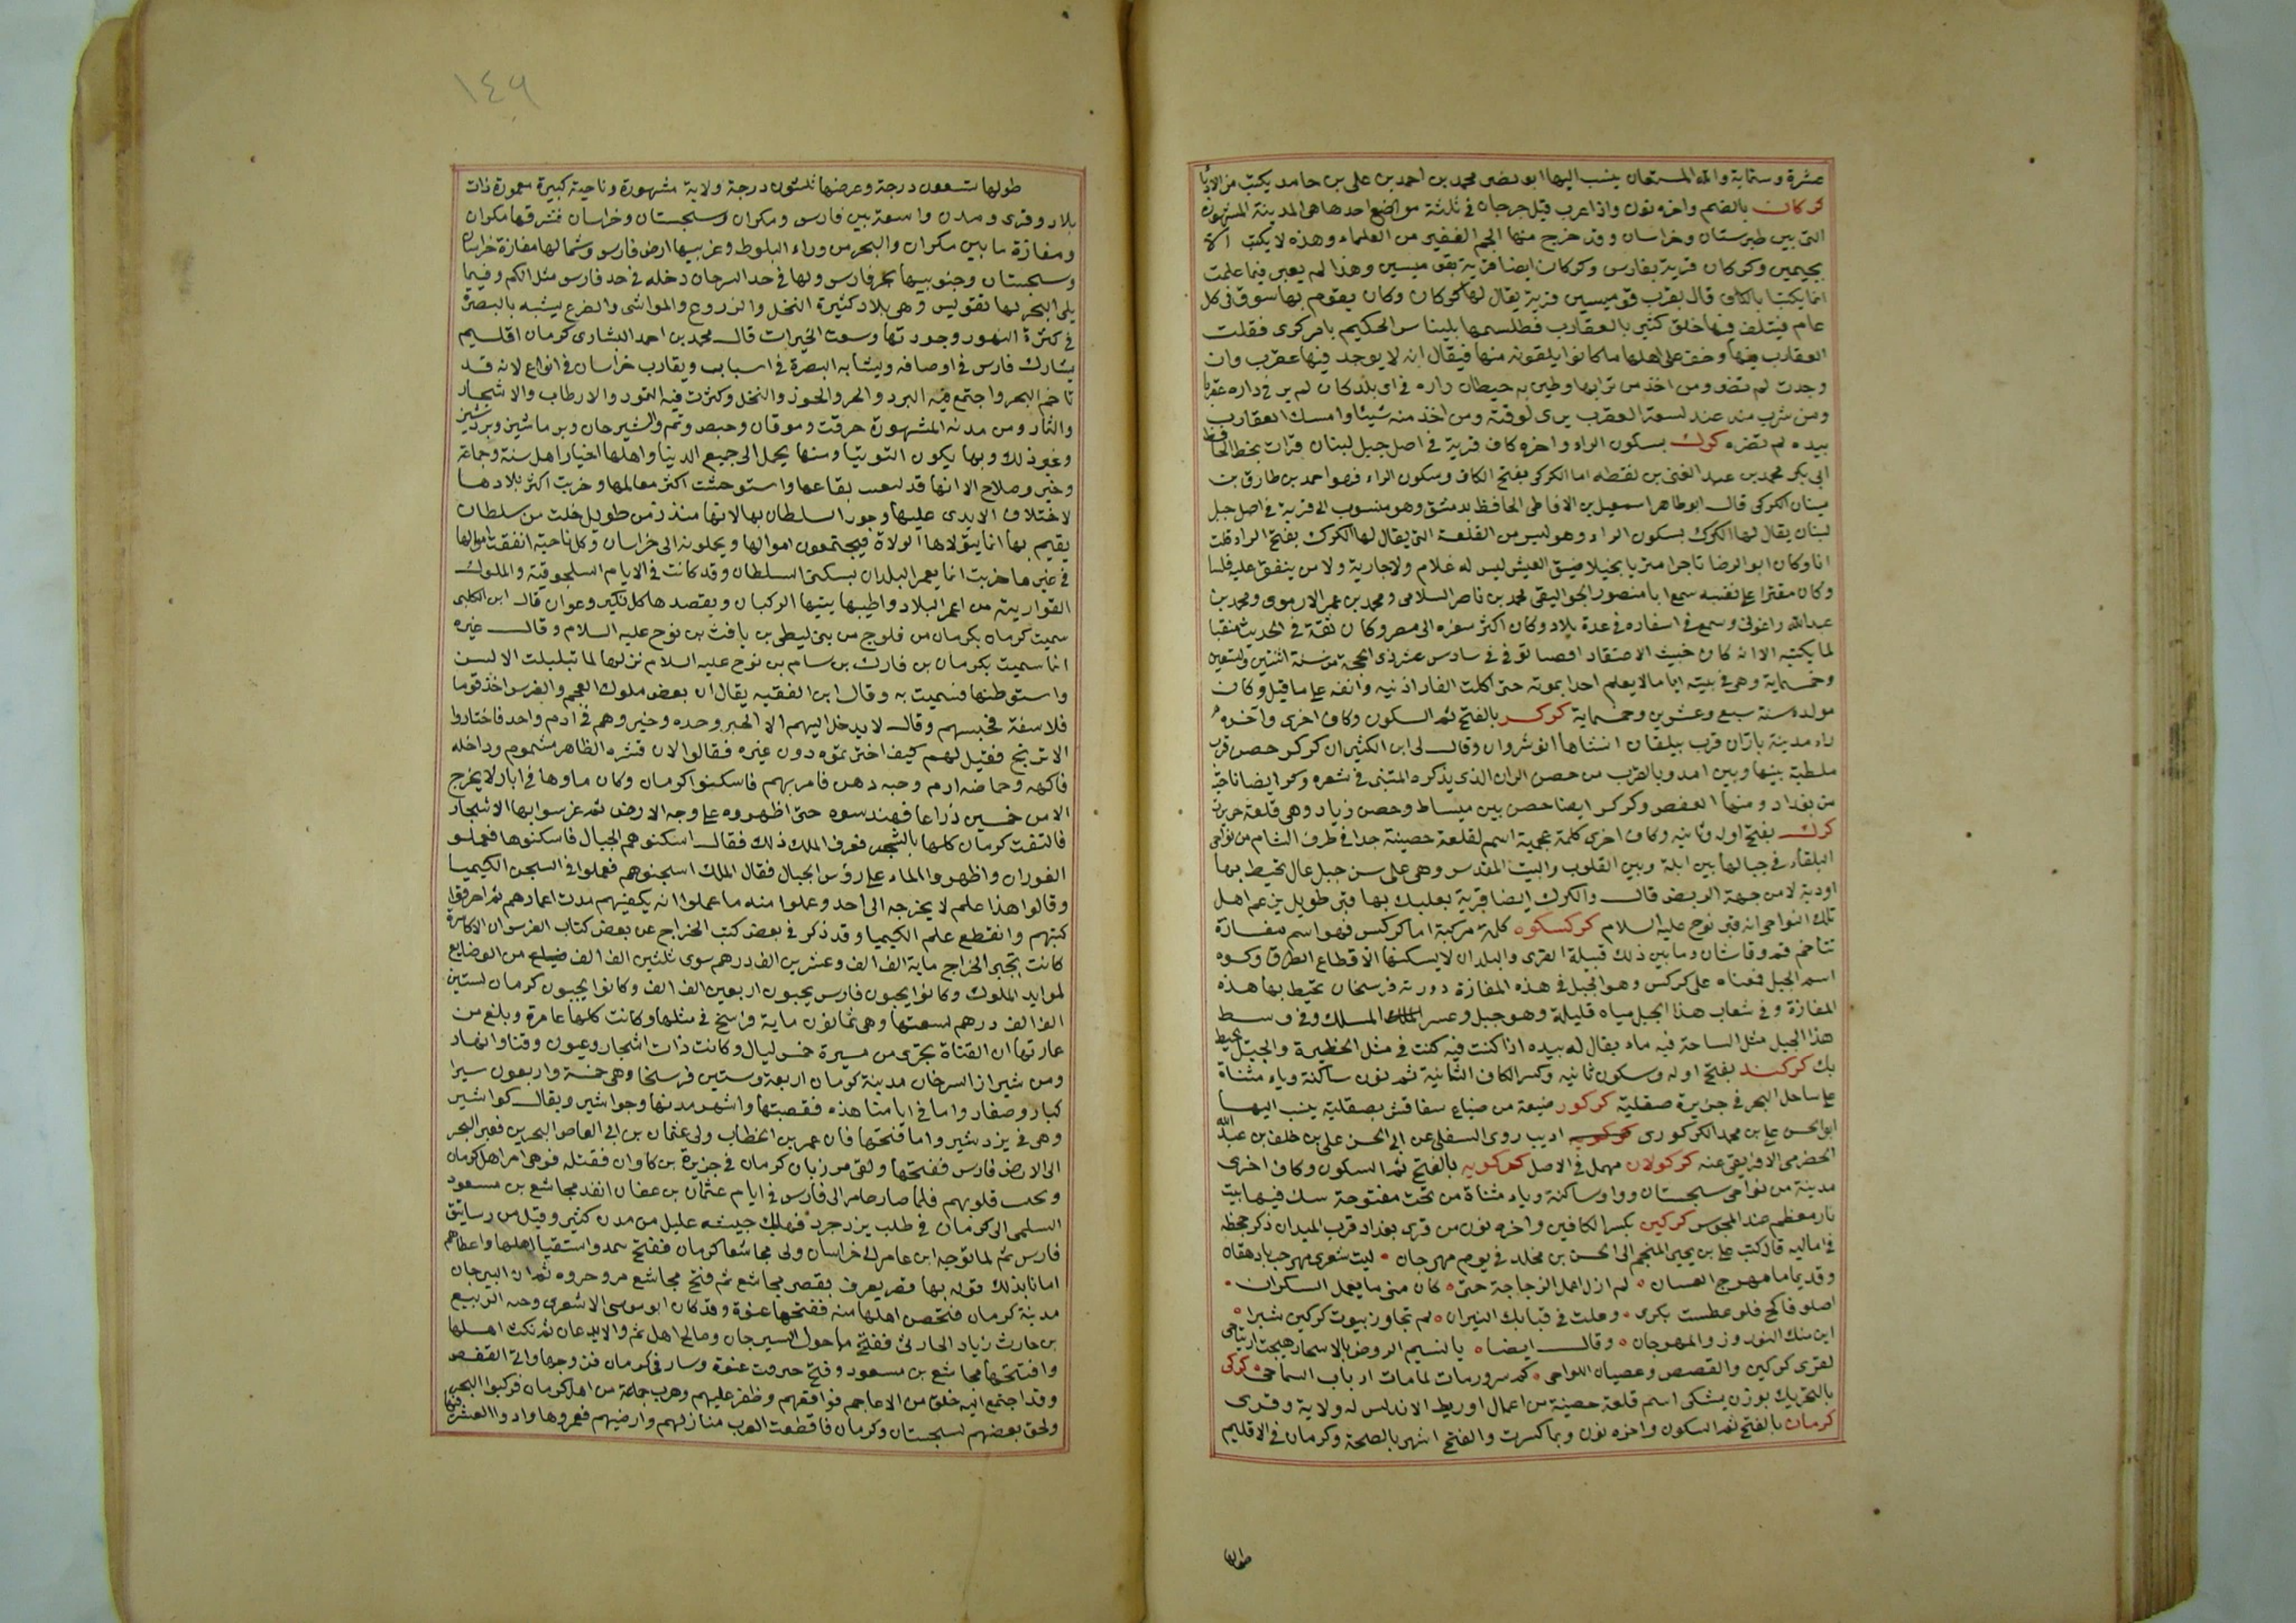 عشرة وستماية والله المستعان ينسب اليها ابو نصر محمد بن احمد بن على بن حامد يكتب من الاديبا
كركان بالضم واخره نون واذا عرب قيل جرجان فى ثلثة مواضع احدها هى المدينة المشهورة
التى بين طبرستان وخراسان وقد خرج منها الجم الغفير من العلماء وهذه لا يكتب الا
بجيمين وكركان قرية بفارس وكركان ايضا قرية بقرميسين وهذا لم يعبر فيما علمت
انما يكتب بالكاف قال بقرب قرميسين قرية يقال لها كركان وكان يقوم بها سوق فى كل
عام فيتلف فيها خلق كثير بالعقارب فطلسمها بليناس الحكيم بامر كسرى فقلت
العقارب فيها وخف على اهلها ما كانوا يلقونه منها فيقال انه لا يوجد فيها عقرب وان
وجدت لم تضر ومن اخذ من ترابها وطين به حيطان داره فى اى بلد كان لم ير فى داره عقربا
ومن شرب منه عند لسعة العقرب برى لوقته ومن اخذ منه شيئا وامسك العقارب
بيده لم تضره كرك بسكون الراء واخره كاف قرية فى اصل جبل لبنان قرات بخط الحافظ
ابى بكر محمد بن عبد الغنى بن نقطه اما الكركى بفتح الكاف وسكون الراء فهو احمد بن طارق بن
سنان الكركى قال ابو طاهر اسمعيل بن الانماطى الحافظ بدمشق وهو منسوب الى قرية فى اصل جبل
لبنان يقال لها الكرك بسكون الراء وهو ليس من القلعة التى يقال لها الكرك بفتح الراء قلت
انا وكان ابو الرضا تاجرا مثريا بخيلا ضيق العيش ليس له غلام ولا جارية ولا من ينفق عليه فلسا
وكان مقترا على نفسه سمع ابا منصور الجواليقى محمد بن ناصر السلامى ومحمد بن عمر الارموى ومحمد بن
عبد الله راغونى وسمع فى اسفاره فى عدة بلاد وكان اكثر سفره الى مصر وكان ثقة فى الحديث متقنا
لما يكتبه الا انه كان خبيث الاعتقاد توفى فى سادس عشر ذى الحجة من سنة اثنتين وتسعين
وخمسماية وهى فى بيته اياما لا يعلم احد بموته حتى اكلت الفار اذنيه وانفه على ما قيل وكان
مولده سنة سبع وعشرين وخمسماية كركر بالفتح ثم السكون وكاف اخرى وآخره
راء مدينة باران قرب بيلقان انشاها انوشروان وقال لى ابن الكثير ان كركر حصن قرب
ملطية بينها وبين امد وبالقرب من حصن الران الذى يذكره المتنبى فى شعره وكركر ايضا ناحية
من بغداد ومنها القفص وكركر ايضا حصن بين سميساط وحصن زياد وهى قلعة خربت
كرك بفتح اوله وثانيه وكاف اخرى كلمة عجمية اسم لقلعة حصينة جدا فى طرف الشام من نواحى
البلقاء فى جبالها بين ايلة وبين القلوب والبيت المقدس وهى على سن جبل عال تحيط بها
اودية لا من جهة الربض قال والكرك ايضا قرية بعلبك بها قبر طويل يزعم اهل
تلك النواحى انه قبر نوح عليه السلام كركسكوه كلمة مركبة اما كركس فهو اسم مفازة
تتاخم قم وقاشان وما بين ذلك قليلة القرى والبلدان لا يسكنها الا قطاع الطرق وكوه
اسم الجبل فمعناه على كركس وهو الجبل فى هذه المفازة دورته فرسخان تحيط بها هذه
المفازة وفى شعاب هذا الجبل مياه قليلة وهو جبل وعر المسلك وفى وسط
هذا الجبل مثل الساحة فيه ماء يقال له بيده اذا كنت فيه كنت فى مثل الحظيرة والجبل محيط
بك كركنت بفتح اوله وسكون ثانيه وكسر الكاف الثانية ثم نون ساكنة وياء مثناة
على ساحل البحر فى جزيرة صقلية كركور ضيعة من ضياع سفاقس بصقلية ينسب اليها
ابو الحسن على بن محمد الكركورى اديب روى السلفى عن ابى الحسن على بن خلف بن عبد الله
الحضرمى الافريقى عنه كركولان مهمل فى الاصل كركويه بالفتح ثم السكون وكاف اخرى
مدينة من نواحى سجستان وواو ساكنة وياء مثناة من تحت مفتوحة سك فيها بيت
نار معظم عند المجوس كركين بكسر الكافين واخره نون من قرى بغداد قرب الميدان ذكر جحظه
فى اماليه قال كتب على بن يحيى المنجم الى الحسن بن مخلد فى يوم مهرجان ليت شعرى مهرجت يا دهقان
وقديما ما مهرج الفسان لم ازل اعمل الزجاجة حتى كان منى ما يعمل السكران
اصلو فاكح فلو عطست بكرى وعلت فى قبابك النيران لم تجاوز بيوت كركين شبرا
اين منك النوروز والمهرجان وقال ايضا يا نسيم الروض بالاسحار هيجت ارتياحى
لقرى كركين والقصص وعصيان اللواحى كم سرورمات لمامات ارباب السماح كركى
بالتحريك بوزن بشكى اسم قلعة حصينة من اعمال اوريط الاندلس له ولاية وقرى
كرمان بالفتح ثم السكون واخره نون وبما كسرت والفتح اشهر بالصحة وكرمان فى الاقليم
طولها
١٤٩
طولها تسعون درجة وعرضها ثلثون درجة ولاية مشهورة وناحية كبيرة معمورة ذات
بلاد وقرى ومدن واسعة بين فارس ومكران وسجستان وخراسان فشرقها مكران
ومفازة ما بين مكران والبحر من وراء البلوط وغربيها ارض فارس وشمالها مفازة خراسان
وسجستان وجنوبيها بحر فارس ولها فى حد السرجان دخله فى حد فارس مثل الكم وفيما
يلى البحر لها تقويس وهى بلاد كثيرة النخل والزروع والمواشى والضرع يشبه بالبصرة
فى كثرة التمور وجودتها وسعت الخيرات قال محمد بن احمد البشارى كرمان اقليم
يشارك فارس فى اوصافه ويشابه البصرة فى اسباب ويقارب خراسان فى انواع لانه قد
تاخم البحر واجتمع فيه البرد والحر والجوز والنخل وكثرت فيه التمور والارطاب والاشجار
والثمار ومن مدنه المشهورة جرفت وموقان وخبيص وبم والشيرجان وبرماشير وبردشير
وغير ذلك وبها يكون التوتيا ومنها يحمل الى جميع الدنيا واهلها اخيار اهل سنة وجماعة
وخير وصلاح الا انها قد تشعبت بقاعها واستوحشت اكثر معالمها وخربت اكثر بلادها
لاختلاف الايدى عليها وجور السلطان بها لانها منذ زمن طويل خلت من سلطان
يقيم بها انما يتولاها الولاة فيجتمعون اموالها ويحملونه الى خراسان وكل ناحية انفقت اموالها
فى غيرها خربت انما يعمر البلدان بسكنى السلطان وقد كانت فى الايام السلجوقية والملوك
القواريتة من اعمر البلاد واطيبها ينتيها الركبان ويقصدها كل بكير وعوان قال ابن الكلبى
سميت كرمان بكرمان من فلوج من بنى ليطى بن يافث بن نوح عليه السلام وقال غيره
انما سميت بكرمان بن فارك بن سام بن نوح عليه السلام نزلها لما تبلبلت الالسن
واستوطنها فسميت به وقال ابن الفقيه يقال ان بعض ملوك العجم والفرس اخذ قوما
فلاسفة فحبسهم وقال لا يدخل اليهم الا الخبز وحده وخيروهم فى ادم واحد فاختاروا
الاترنج فقيل لهم كيف اخترتموه دون غيره فقالوا لان قشره الظاهر مشموم وداخله
فاكهه وحماضه ادم وحبه دهن فامر بهم فاسكنوا كرمان وكان ماوها فى ابار لا يخرج
الا من خمسين ذراعا فهندسوه حتى اظهروه على وجه الارض ثم غرسوا بها الاشجار
فالتفت كرمان كلها بالشجر فعرف الملك ذلك فقال اسكنوهم الجبال فاسكنوها فعملو
الفوران واظهروا الماء على رؤس الجبال فقال الملك اسجنوهم فعملوا فى السجن الكيميا
وقالوا هذا علم لا يخرجه الى احد وعملوا منه ما عملوا انه يكفيهم مدت اعمارهم ثم احرقوا
كتبهم وانقطع علم الكيميا وقد ذكر فى بعض كتب الخراج عن بعض كتاب الفرس ان الاكاسرة
كانت تجبى الخراج ماية الف الف وعشرين الف درهم سوى ثلثين الف الف من الوضايع
لموايد الملوك وكانوا يجبون فارس يجبون اربعين الف الف وكانوا يجبون كرمان لستين
الف الف درهم لسعتها وهى ثمانون ماية فراسخ فى مثلها وكانت كلها عامرة وبلغ من
عمارتها ان القناة تجرى من مسيرة خمس ليال وكانت ذات اشجار وعيون وقنا وانهار
ومن شيراز السرخان مدينة كرمان اربعة وستين فرسخا وهى خمسة واربعون سيرا
كبار وصغار واما فى ايامنا هذه فقصبتها واشهر مدنها وجواشير ويقال كواشير
وهى فى يزدشير واما فتحها فان عمر بن الخطاب ولى عثمان بن ابى العاص البحرين فعبر البحر
الى الارض فارس ففتحها ولقى مرزبان كرمان فى جزيرة بن كاوان فقتله فوهى امر اهل كرمان
ونخب قلوبهم فلما صار ابن عامر الى فارس فى ايام عثمان بن عفان انفد مجاشع بن مسعود
السلمى الى كرمان فى طلب يزدجرد فهلك جيشه عليل من مدن كثير وقيل من رساتق
فارس ثم لما توجه ابن عامر الى خراسان ولى مجاشعا كرمان ففتح سمد واستقيا اهلها واعطاهم
امانا بذلك وله بها قصر يعرف بقصر مجاشع ثم فتح مجاشع مروخروه ثم ان السيرجان
مدينة كرمان فتحصن اهلها منه ففتحها عنوة وقد كان ابو موسى الاشعرى وجه الربيع
بن حارث زياد الحارثى ففتح ما حول السيرجان وصالح اهل بم والاندعان ثم نكث اهلها
وافتتحها مجاشع بن مسعود وفتح جيرفت عنوة وسار فى كرمان فدوجها واتى القفص
وقد اجتمع اليه خلق من الاعاجم فواقعهم وظفر عليهم وهرب جماعة من اهل كرمان فركبوا البحر
ولحق بعضهم بسجستان وكرمان فاقطعت العرب منازلهم وارضيهم فعمروها وادوا العشر فيها